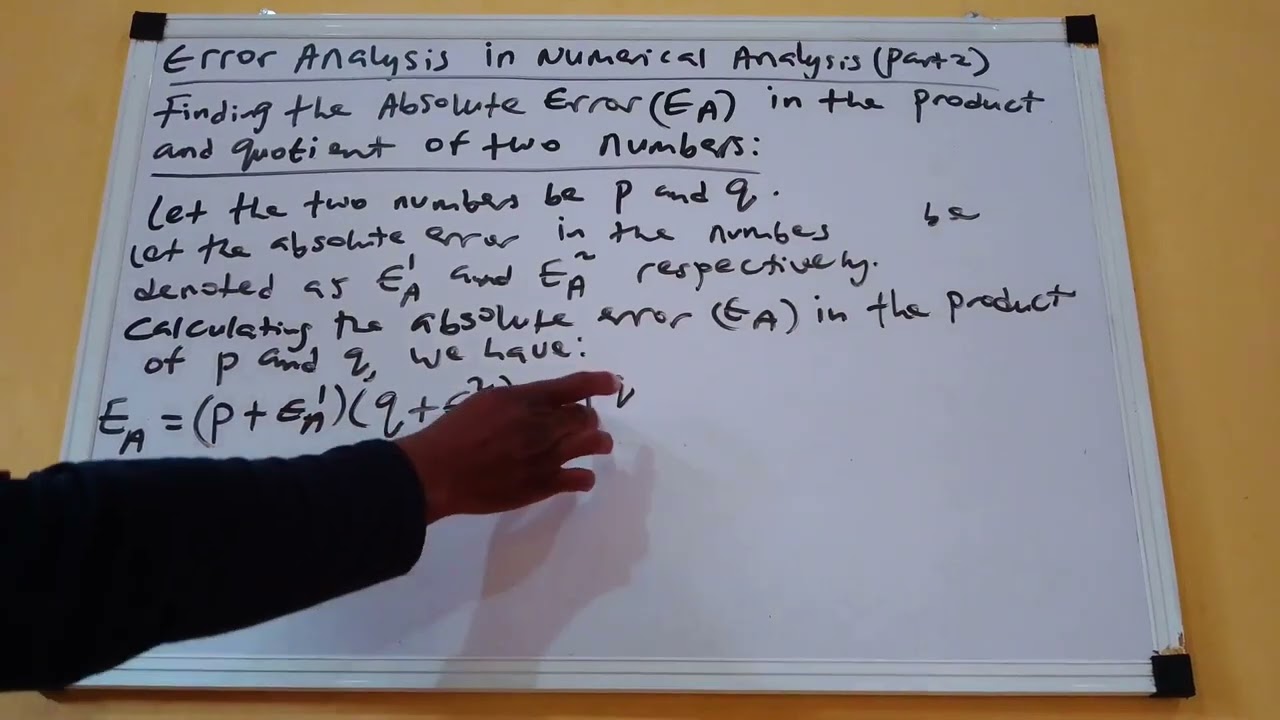 Error Analysis in Numerical Analysis (part 2)
Finding the Absolute Error (EA) in the product
and quotient of two numbers:
Let the two numbers be p and q.
Let the absolute error in the numbes be
denoted as E¹A and E²A respectively.
Calculating the absolute error (EA) in the product
of p and q, we have:
EA = (p + E¹A)(q + E²